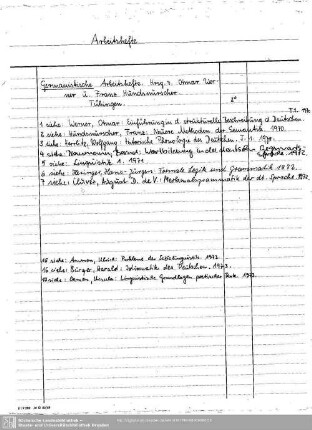 Arbeitshefte
Germanistische Arbeitshefte. Hrsg. v. Otmar Wer-
ner u. Franz Hundsnurscher
Tübingen.
8°
T.1. 1970
1 siehe: Werner, Otmar: Einführung in d. strukturelle Beschreibung d. Deutschen.
2 siehe: Hundsnurscher, Franz: Neuere Methoden der Semantik. 1970.
3 siehe: Herrlitz, Wolfgang: Historische Phonologie des Deutschen. T. 1. 1970.
4 siehe: Naumann, Bernd: Wortbildung in der deutschen Gegenwartssprache 1972.
5 siehe: Linguistik 1. 1971
6 siehe: Heringer, Hans-Jürgen: Formale Logik und Grammatik 1972.
7 siehe: Clüver, August D. de V.: Merkmalsgrammatik der dt. Sprache 1972.
15 siehe: Ammon, Ulrich: Probleme der Soziolinguistik. 1973.
16 siehe: Burger, Harald: Idiomatik des Deutschen. 1973.
siehe: Oomen, Ursula: Linguistische Grundlagen poetischer Texte. 1973.